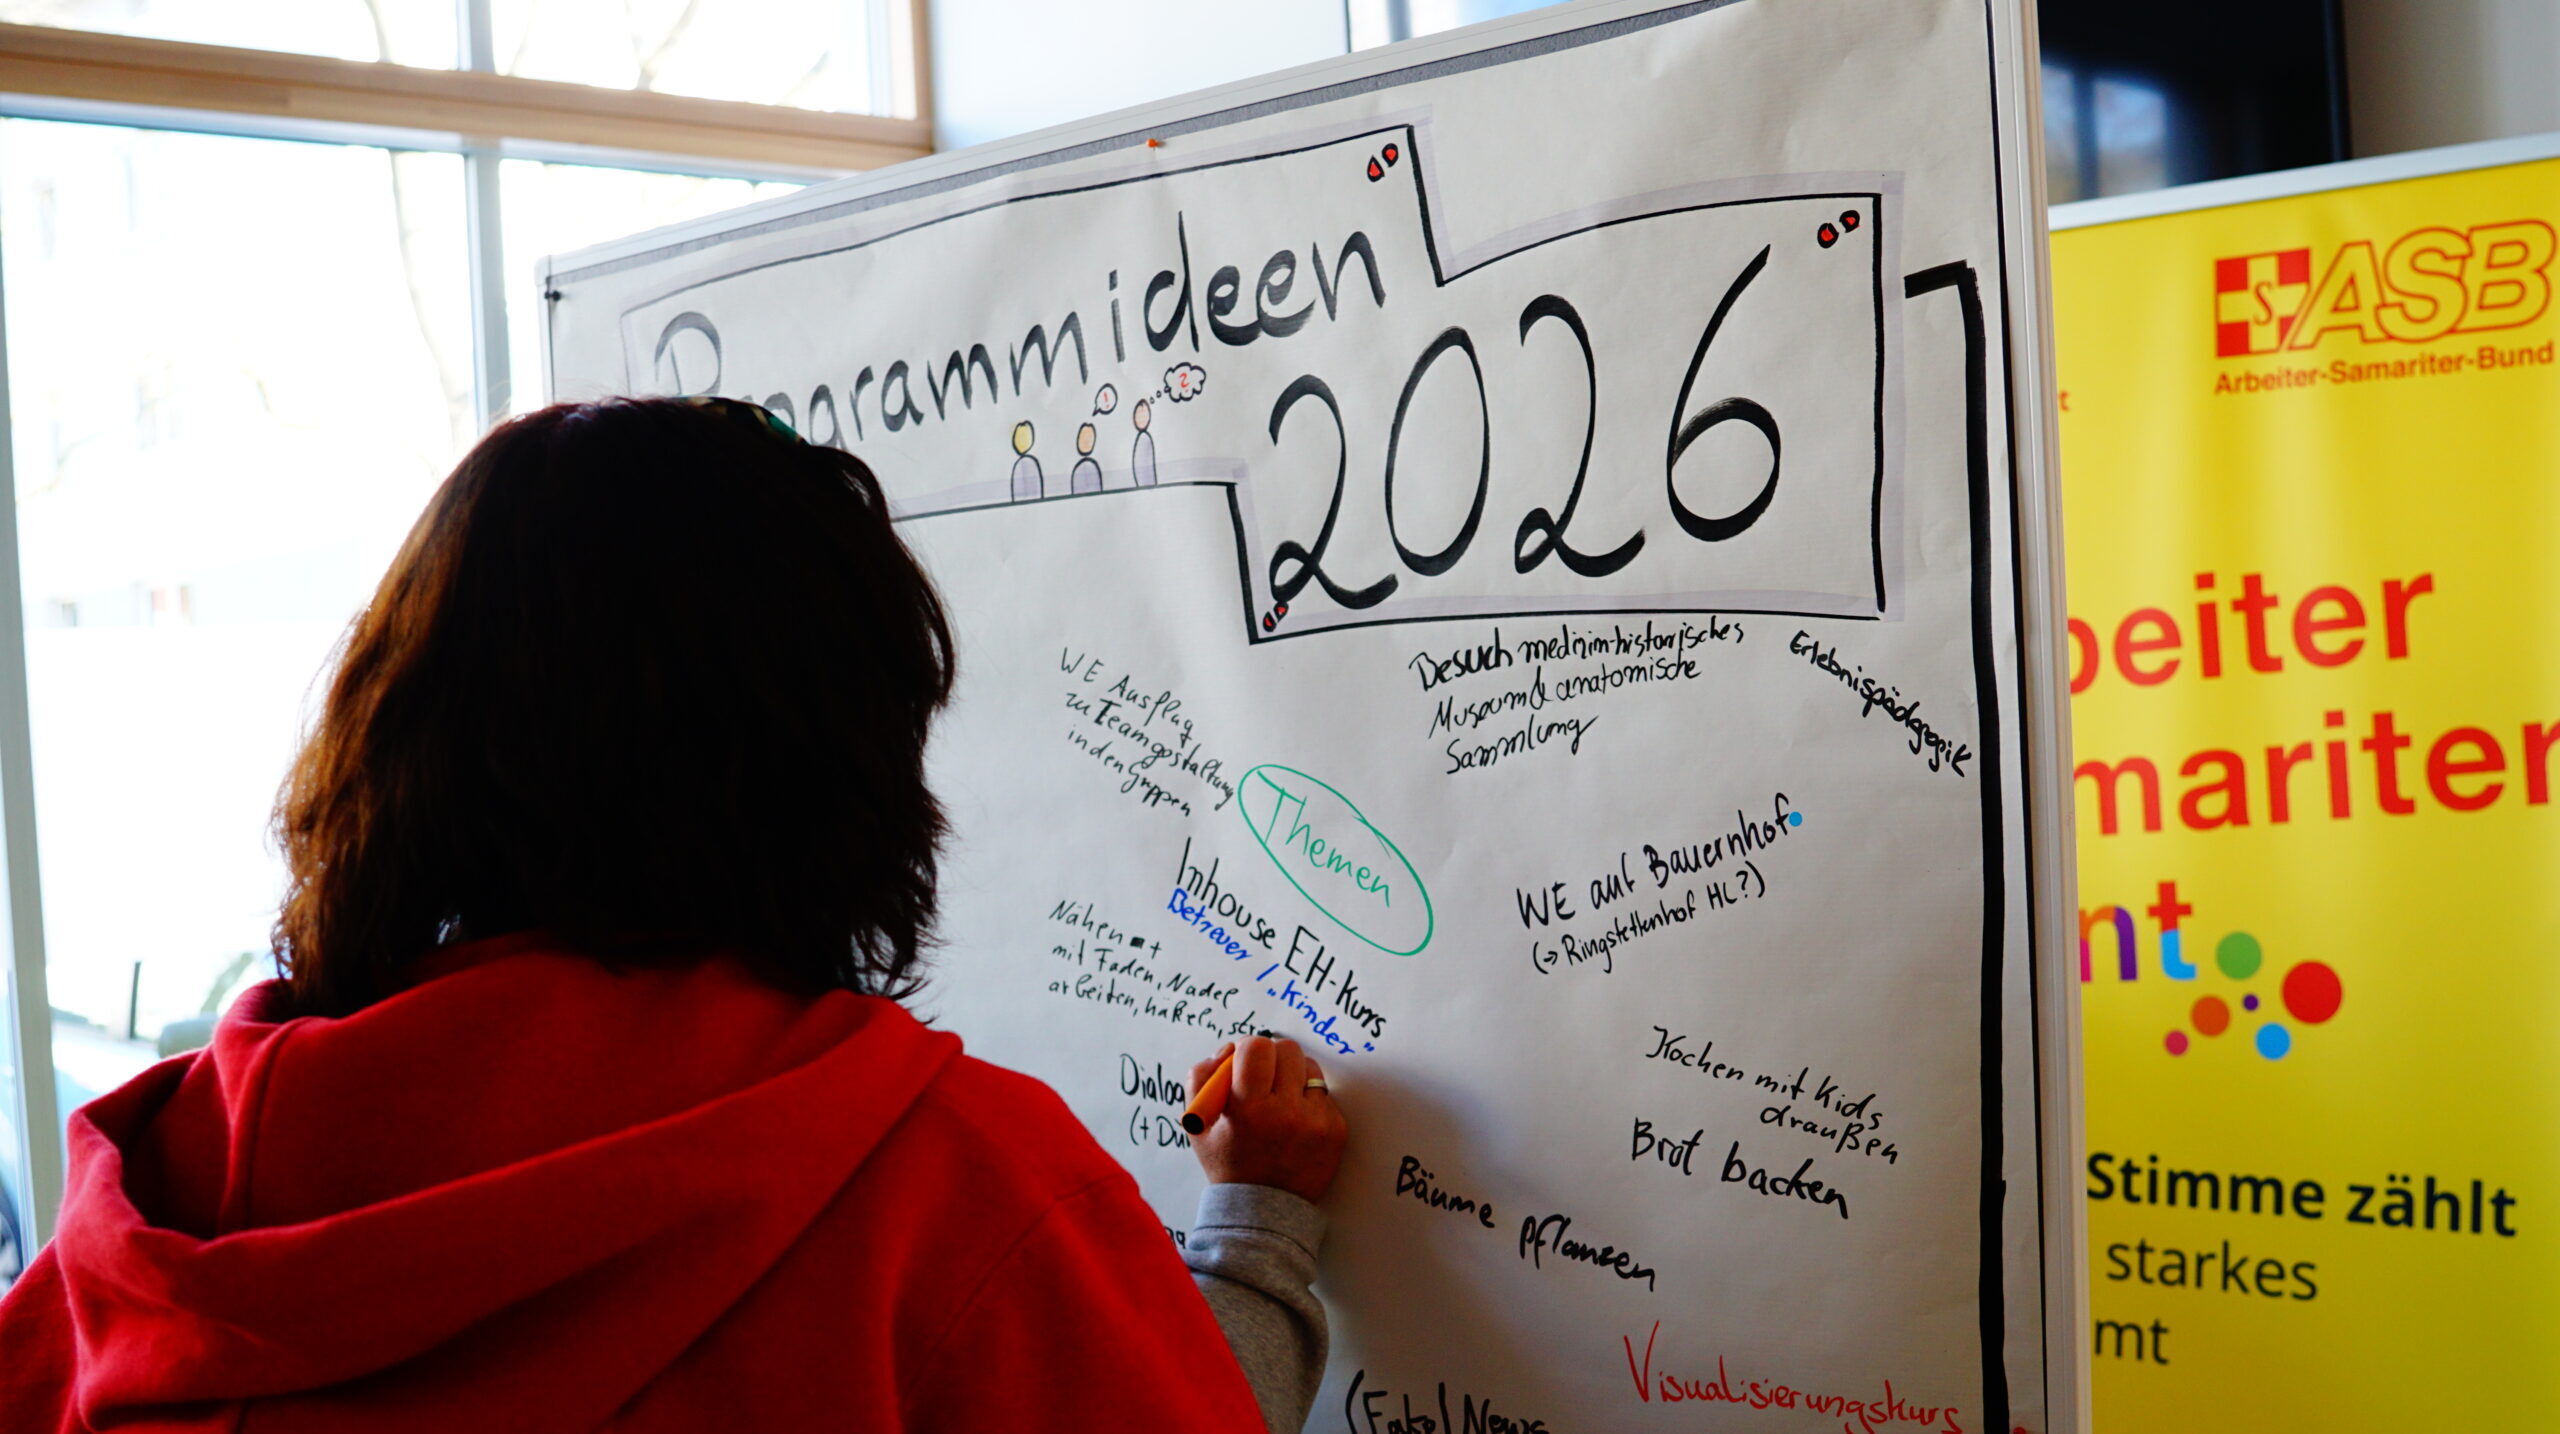 Programmideen
2026
!
?
WE Ausflug
zu Teamgestaltung
in den Gruppen
Besuch medizin-historisches
Museum & anatomische
Sammlung
Erlebnispädagogik
Themen
WE auf Bauernhof
(→ Ringstettenhof HL?)
Inhouse EH-Kurs
Betreuer / "Kinder"
Nähen +
mit Faden, Nadel
arbeiten, häkeln, stri
Dialog
(+ Dü
Kochen mit Kids
draußen
Brot backen
Bäume pflanzen
Visualisierungskurs
(Fake) News
S ASB
Arbeiter-Samariter-Bund
beiter
mariter
nt
Stimme zählt
starkes
mt